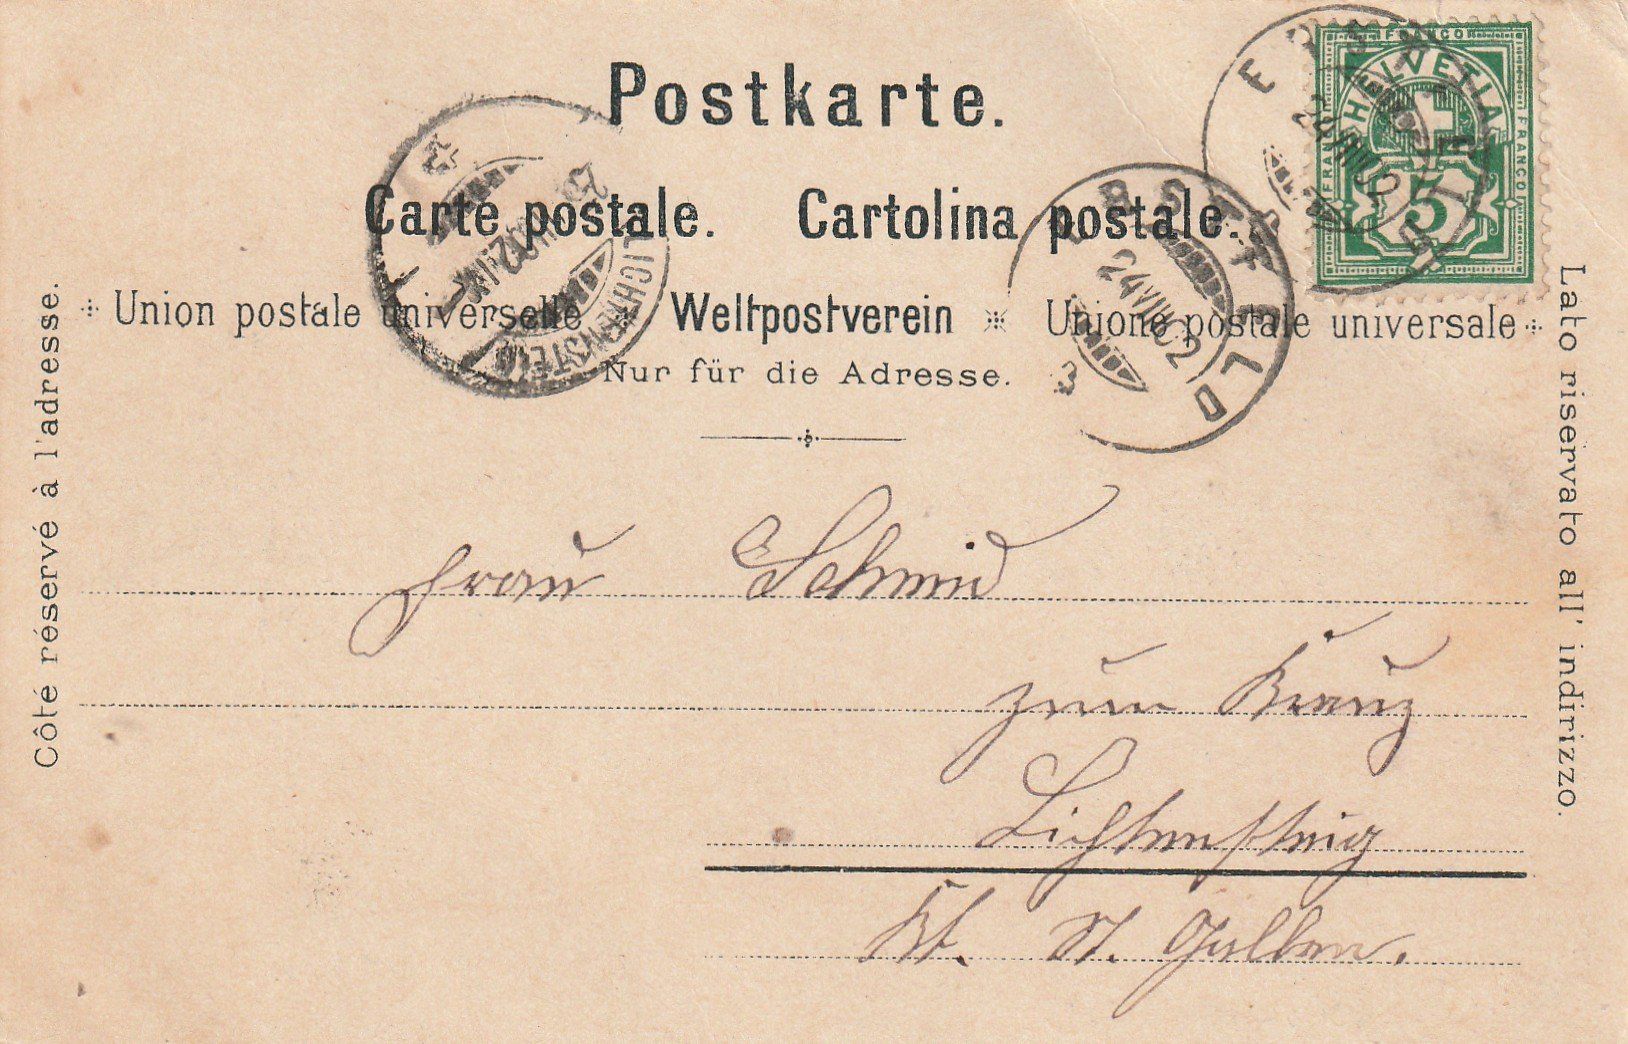 Postkarte.
Carte postale. Cartolina postale.
Union postale universelle Weltpostverein Unione postale universale
Nur für die Adresse.
Côté réservé à l'adresse.
Lato riservato all' indirizzo.
FRANCO
HELVETIA
FRANCO
FRANCO
5
ERSTFELD
24 VIII 02
ERSTFELD
24 VIII 02
LICHTENSTEIG
VIII 02
Frau Schmid
zum Kreuz
Lichtensteig
Kt. St. Gallen.